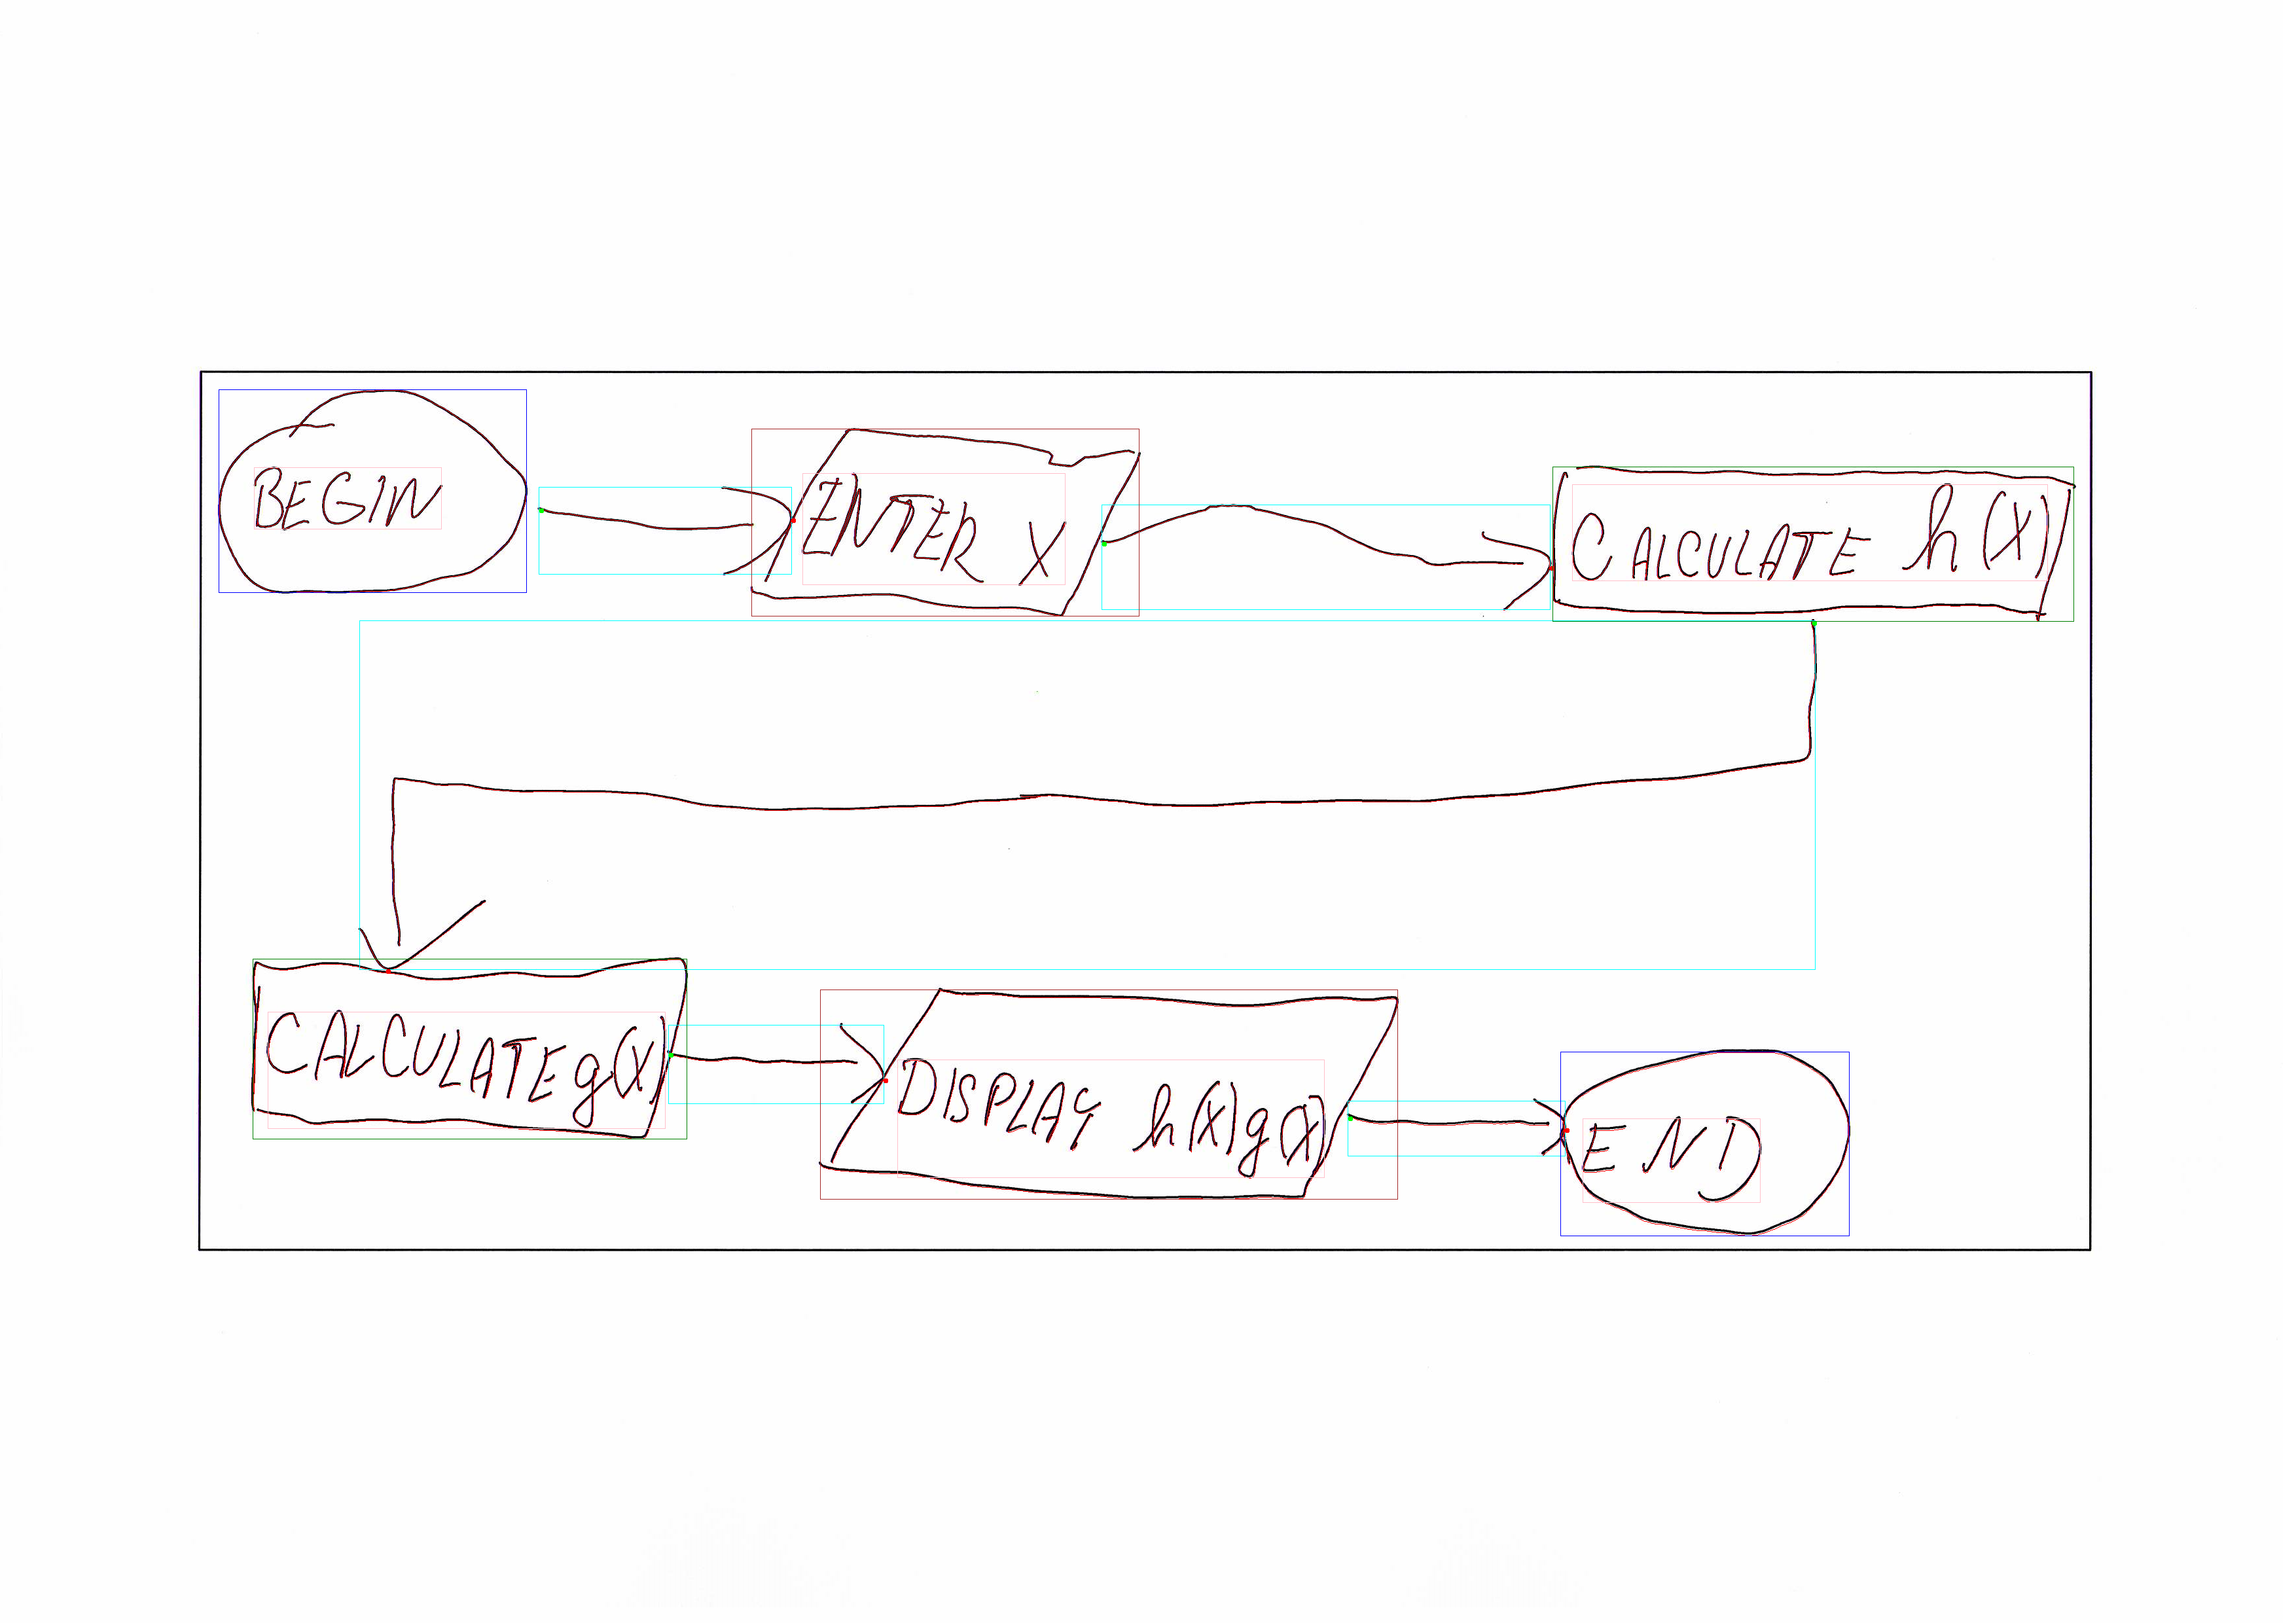 BEGIN
ENTER X
CALCULATE h(X)
CALCULATE g(X)
DISPLAY h(X) g(X)
END